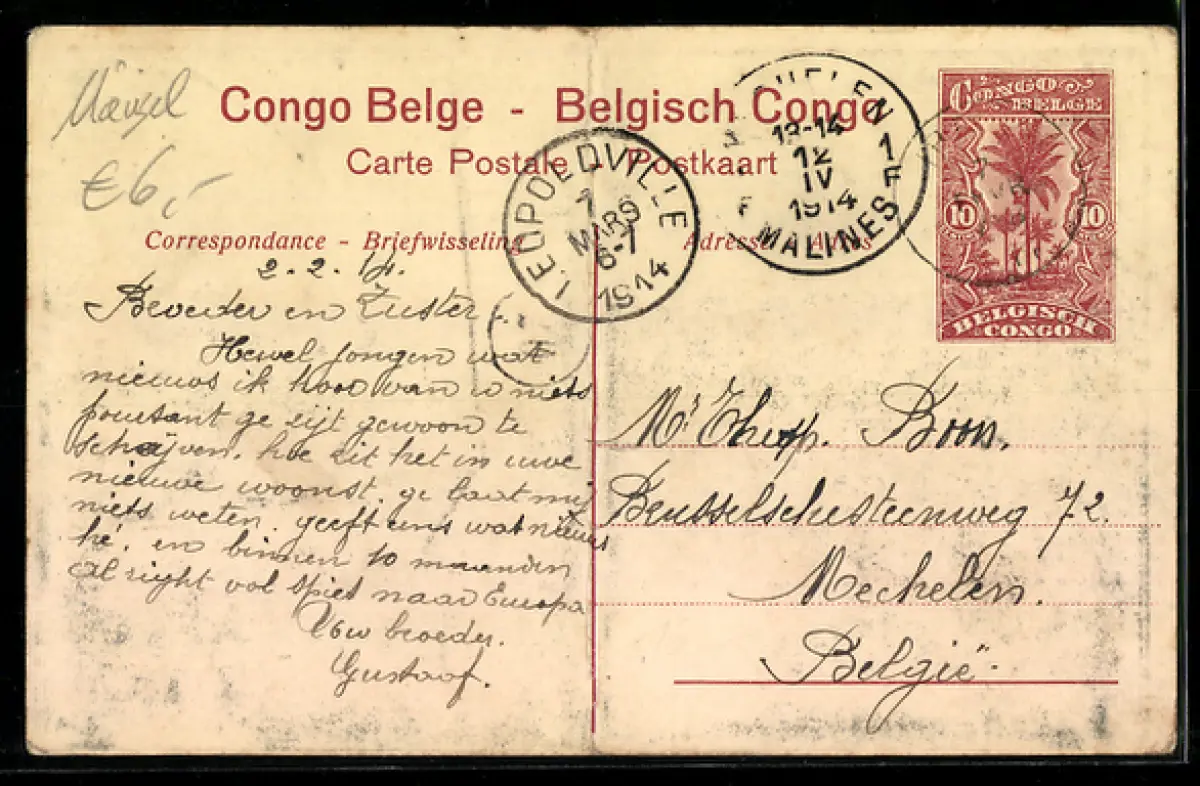 Mängel
€ 6,-
Congo Belge - Belgisch Congo
Carte Postale - Postkaart
Correspondance - Briefwisseling
Adresse - Adres
LEOPOLDVILLE
7
MARS
6-7
1914
MECHELEN 1
13-14
12
IV
1914
F F
MALINES
CONGO
BELGE
10 10
BELGISCH
CONGO
2.2.14.
Broeder en Zuster
Hewel jongen wat
nieuws ik hoor van u niets
poustant ge zijt gewoon te
schrijven. hoe zit het in uwe
nieuwe woonst. ge laat mij
niets weten. geeft ons wat nieuws
hé. en binnen 10 maanden
Al right vol spiet naar Europa
Uow broeder.
Gustaaf.
Mr Theop. Boon.
Brusselschesteenweg 72.
Mechelen.
België.